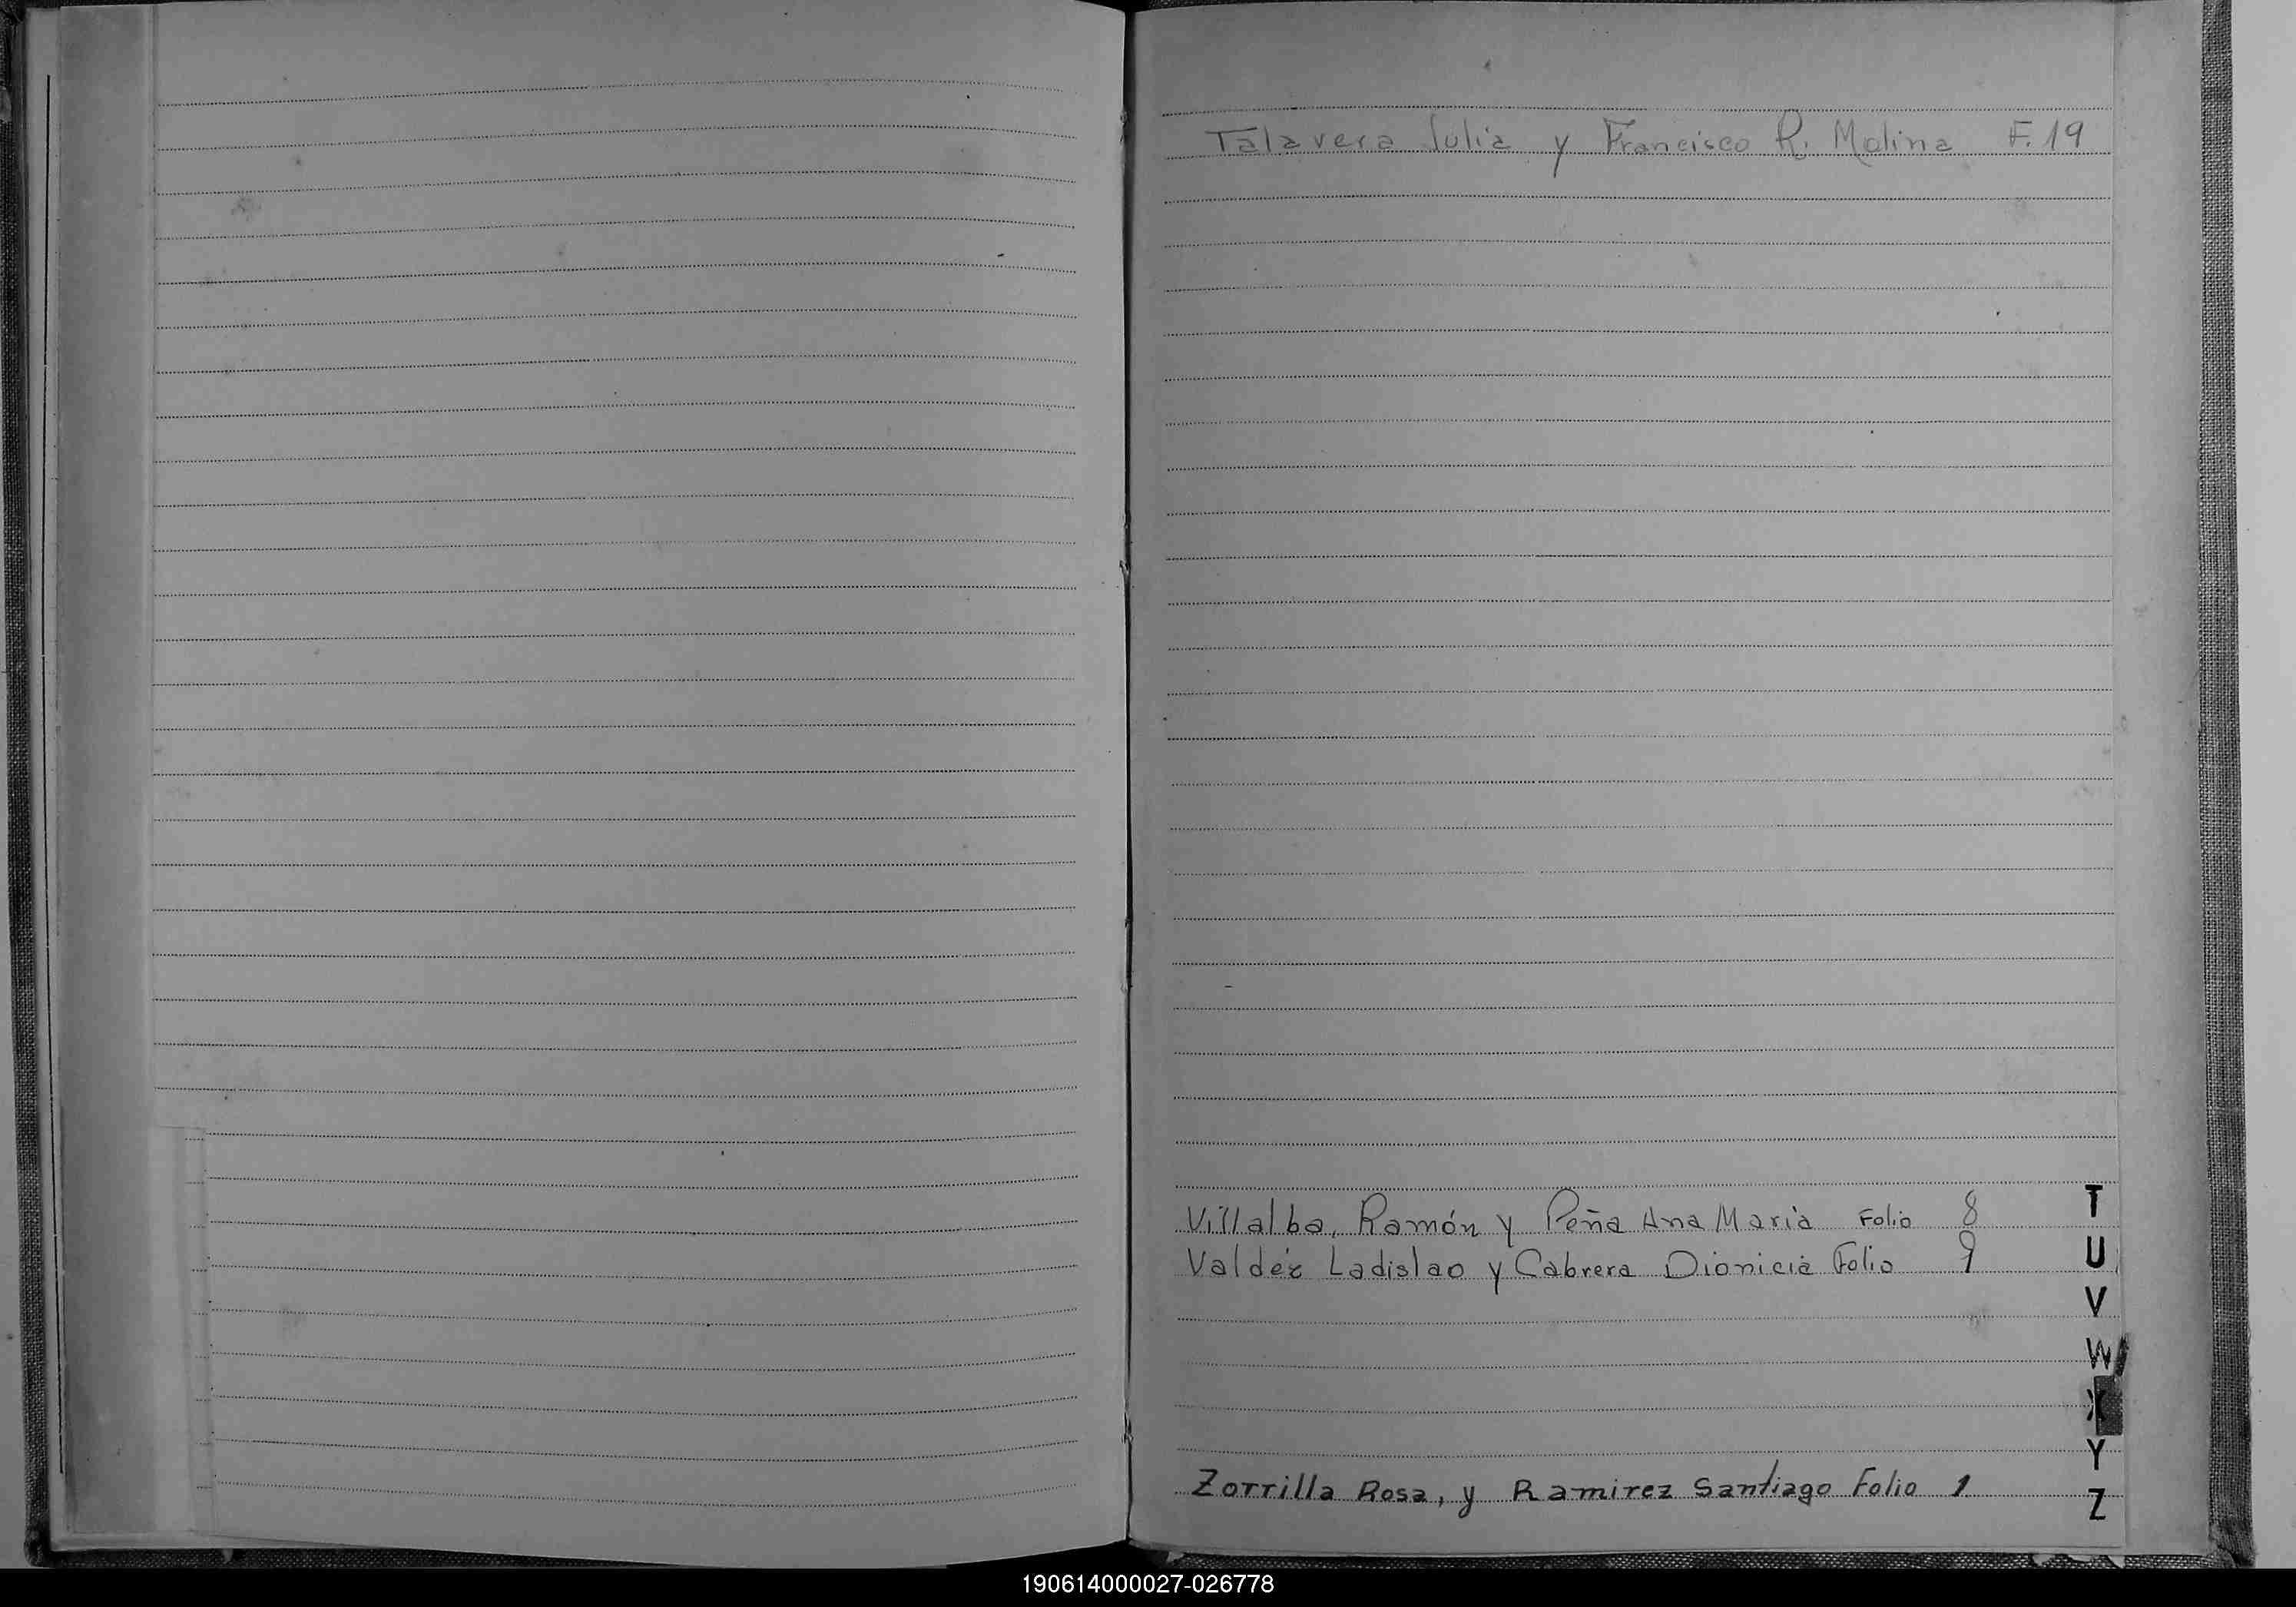 Talavera Julia y Francisco R. Molina F. 19
Villalba, Ramón y Peña Ana María Folio 8
Valdéz Ladislao y Cabrera Dionicia Folio 9
Zorrilla Rosa, y Ramirez Santiago Folio 1
T
U
V
W
X
Y
Z
190614000027-026778